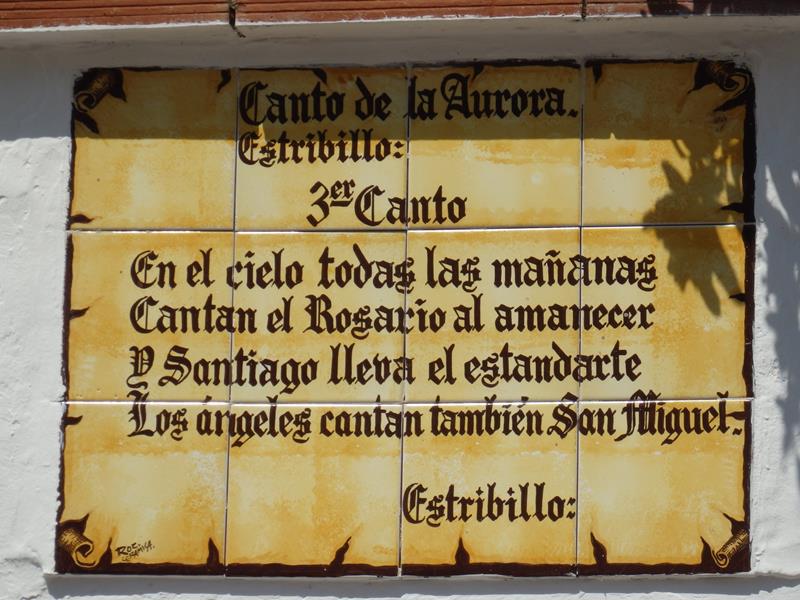 Canto de la Aurora.
Estribillo:
3er Canto
En el cielo todas las mañanas
Cantan el Rosario al amanecer
Y Santiago lleva el estandarte
Los ángeles cantan también San Miguel.
Estribillo: